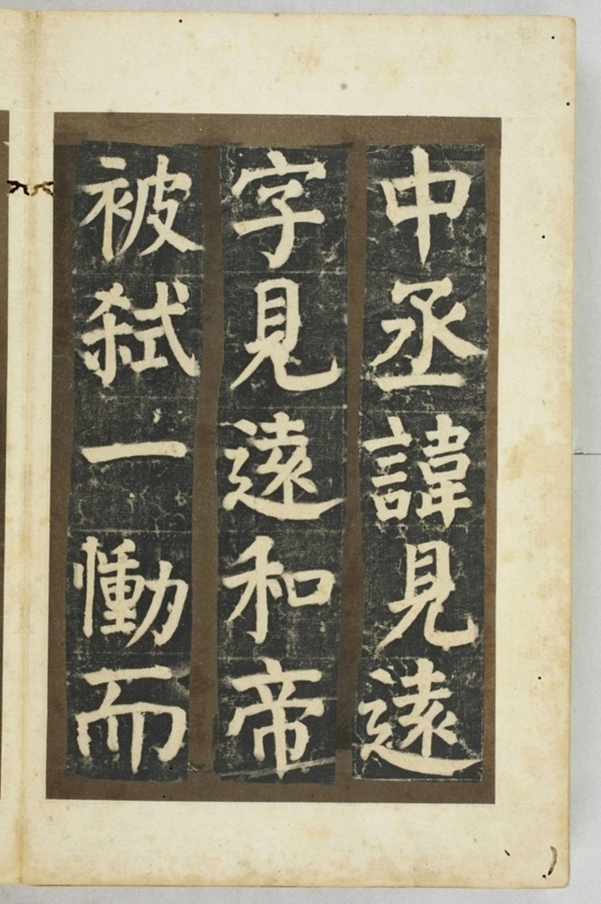 中丞諱見遠
字見遠和帝
被弒一慟而